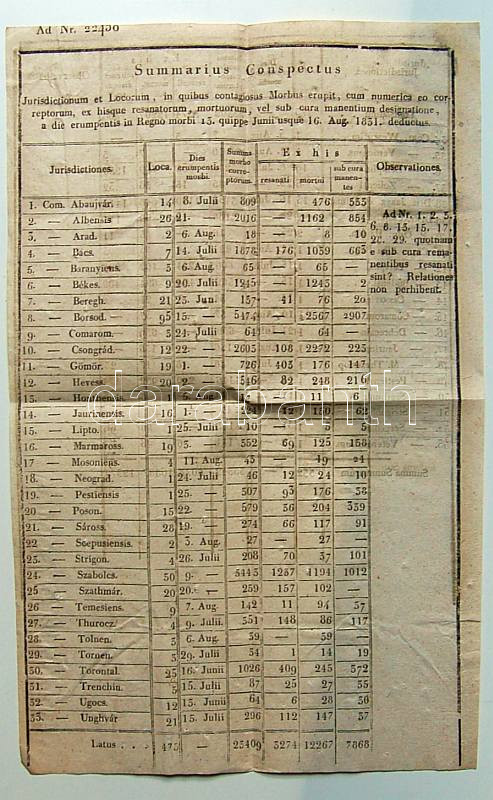 Ad Nr. 22430
Summarius Conspectus
Jurisdictionum et Locorum, in quibus contagiosus Morbus erupit, cum numerica eo cor-
reptorum, ex hisque resanatorum, mortuorum, vel sub cura manentium designatione,
a die erumpentis in Regno morbi 13. quippe Junii usque 16. Aug. 1831. deductus.
Jurisdictiones. Loca. Dies erumpentis morbi. Summa morbo correptorum. Ex his resanati mortui sub cura manentes Observationes.
1. Com. Abaujvár. 14 8. Julii 809 — 476 333
2. — Albensis 26 21. — 2016 — 1162 854
3. — Arad. 2 6. Aug. 18 — 8 10
4. — Bács. 7 14. Julii 1878 176 1039 663
5. — Baranyiens. 3 6. Aug. 65 — 65 —
6. — Békes. 9 20. Julii 1245 — 1243 2
7. — Beregh. 21 23. Jun. 137 41 76 20
8. — Borsod. 93 13. — 5474 — 2567 2907
9. — Comarom. 3 24. Julii 64 — 64 —
10. — Csongrád. 12 22. — 2603 108 2272 223
11. — Gömör. 19 1. — 726 403 176 147
12. — Hevess. 20 2. — 546 82 248 216
13. — — 11 6
14. — Jaurinensis. 16 1. — 12 150 62
15. — Lipto. 1 25. Julii 10 — 5
16. — Marmaross. 19 3. — 352 69 125 158
17 — Mosoniens. 4 11. Aug. 43 — 19 24
18. — Neograd. 1 24. Julii 46 12 24 10
19. — Pestiensis 1 25. — 307 93 176 38
20 — Poson. 15 22. — 579 36 204 339
21. — Sáross. 28 19. — 274 66 117 91
22 — Scepusiensis. 2 3. Aug. 27 — 27 —
23. — Strigon. 4 26. Julii 208 70 37 101
24. — Szabolcs. 50 9. — 3443 1237 1194 1012
25 — Szathmár. 20 20. — 259 157 102 —
26 — Temesiens. 9 7. Aug. 142 11 94 37
27. — Thurocz. 4 9. Julii. 351 148 86 117
28. — Tolnen. 3 6. Aug. 39 — 39 —
29. — Tornen. 3 29. Julii 34 1 14 19
30. — Torontal. 25 16. Junii 1026 409 245 372
31. — Trenchin. 3 15. Julii 87 25 27 35
32. — Ugocs. 12 13. Junii 64 6 28 30
33. — Unghvár 21 15. Julii 296 112 147 37
Ad Nr. 1. 2. 3.
6. 8. 13. 15. 17.
22. 28. 29. quotnam
e sub cura rema-
nentibus resanati
sint? Relationes
non perhibent.
Latus . . . 475 — 23409 3274 12267 7868
darabanth